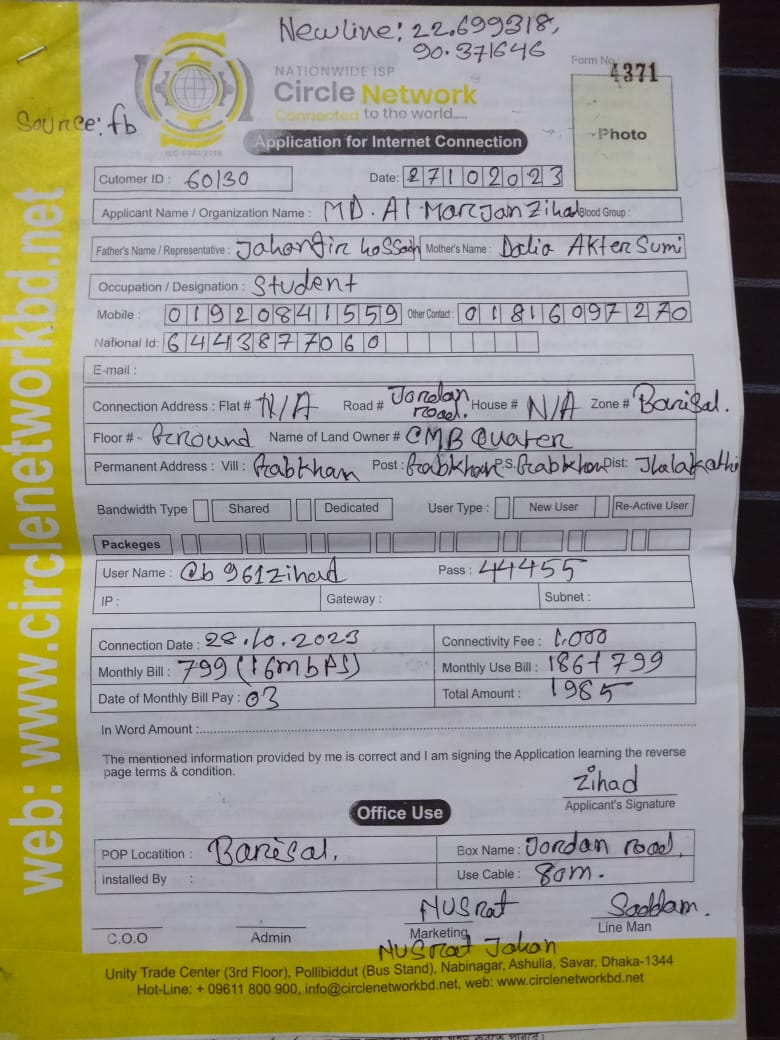 New line: 22.699318,
90.371646
Form No: 4371
NATIONWIDE ISP
Circle Network
Connected to the world.....
Source: fb
ISO 9001:2015
Application for Internet Connection
Photo
Cutomer ID : 60130 Date: 27102023
Applicant Name / Organization Name : MD. Al Marjan Zihad Blood Group :
Father's Name / Representative : Jahangir Hossain Mother's Name : Dalia Akter Sumi
Occupation / Designation : Student
Mobile : 01920841559 Other Contact : 01816097270
National Id: 6443877060
E-mail :
Connection Address : Flat # N/A Road # Jordan road. House # N/A Zone # Barisal.
Floor # - Ground Name of Land Owner # CMB Quater
Permanent Address : Vill : Gabkhan Post : Gabkhan P.S. Gabkhan Dist: Jhalakathi
Bandwidth Type Shared Dedicated User Type : New User Re-Active User
Packeges
User Name : Cb961zihad Pass : 44455
IP : Gateway : Subnet :
Connection Date : 28.10.2023 Connectivity Fee : 1,000
Monthly Bill : 799 (16mbps) Monthly Use Bill : 186+799
Date of Monthly Bill Pay : 03 Total Amount : 1985
In Word Amount :
The mentioned information provided by me is correct and I am signing the Application learning the reverse
page terms & condition.
Zihad
Applicant's Signature
Office Use
POP Locatition : Barisal, Box Name : Jordan road,
Installed By : Use Cable : 80m.
Nusrat Saddam.
C.O.O Admin Marketing Line Man
Nusrat Jahan
Unity Trade Center (3rd Floor), Pollibiddut (Bus Stand), Nabinagar, Ashulia, Savar, Dhaka-1344
Hot-Line: + 09611 800 900, info@circlenetworkbd.net, web: www.circlenetworkbd.net
web: www.circlenetworkbd.net